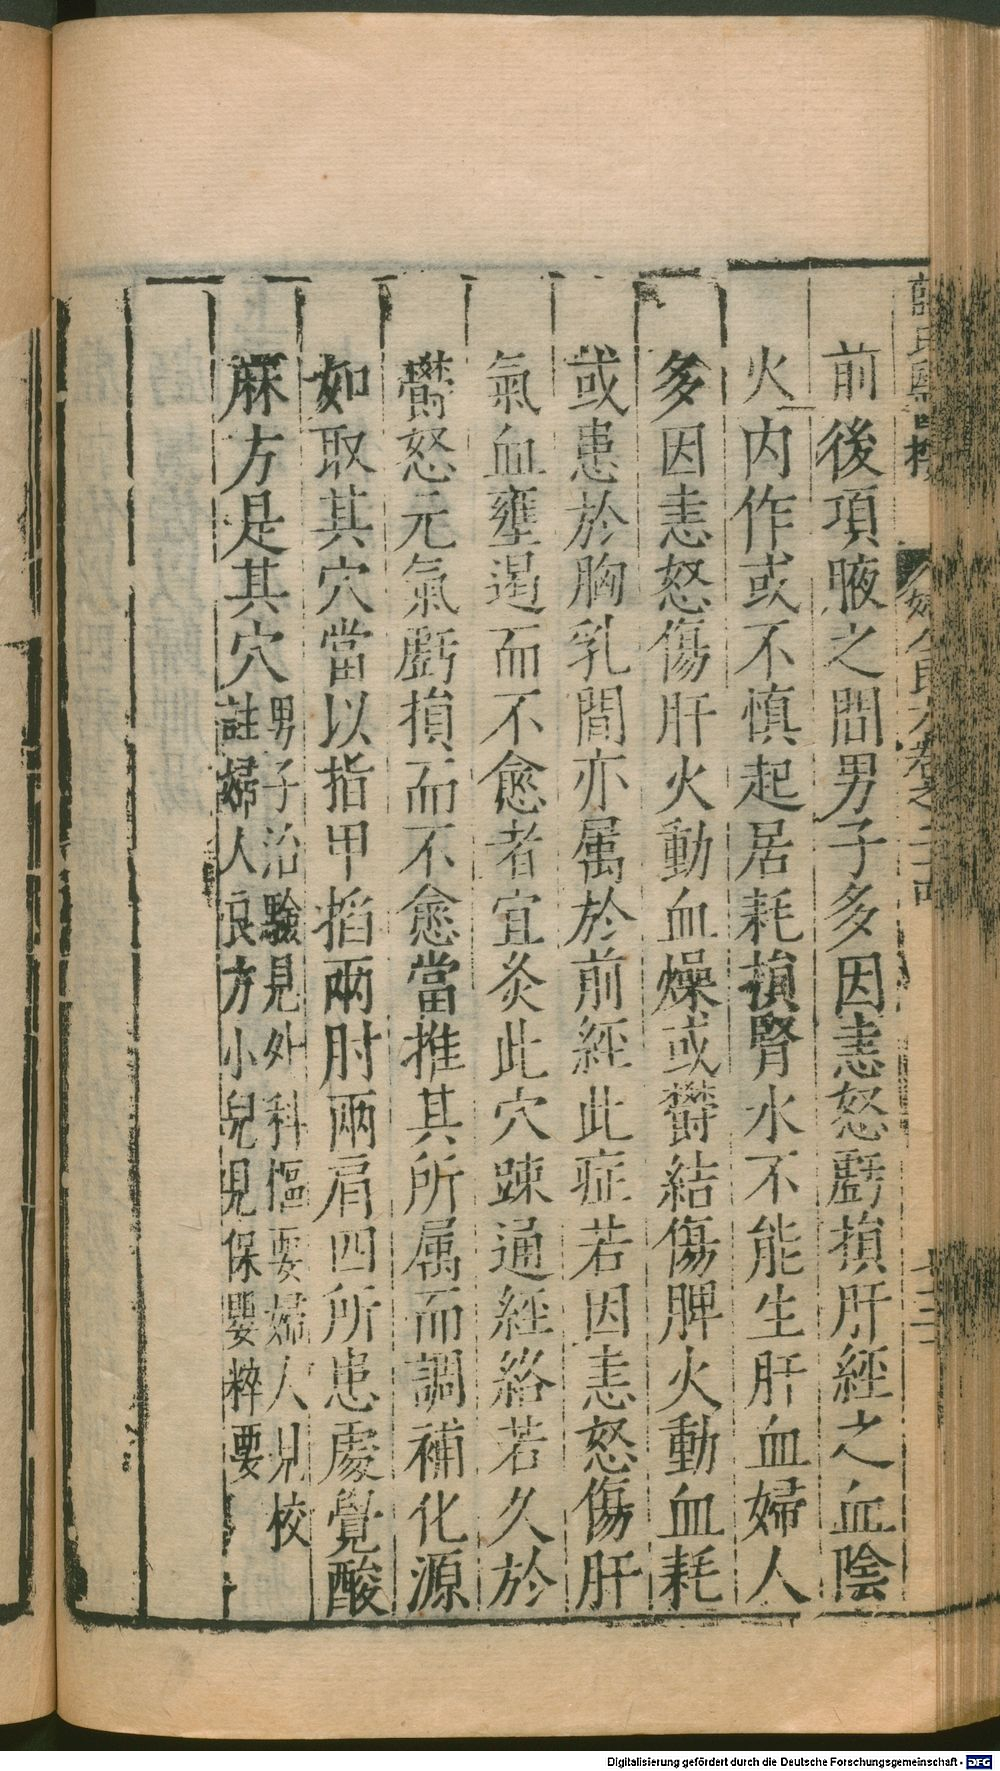 前後項腋之間男子多因恚怒虧損肝經之血陰
火内作或不慎起居耗損腎水不能生肝血婦人
多因恚怒傷肝火動血燥或欝結傷脾火動血耗
或患於胸乳間亦属於前經此症若因恚怒傷肝
氣血壅遏而不愈者宜灸此穴踈通經絡若久於
欝怒元氣虧損而不愈當推其所属而調補化源
如取其穴當以指甲掐兩肘兩肩四所患處覺酸
麻方是其穴
男子治驗見外科樞要婦人見校
註婦人良方小兒見保嬰粹要
Digitalisierung gefördert durch die Deutsche Forschungsgemeinschaft - DFG